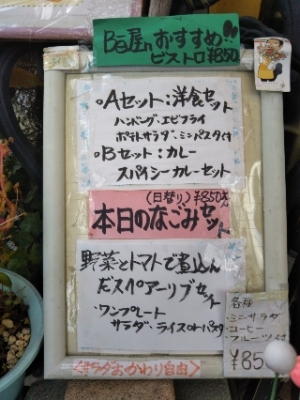 B百屋n おすすめ!!
ビストロ ¥850
○Aセット:洋食セット
ハンバーグ・エビフライ
ポテトサラダ・ミニパスタ付
○Bセット:カレー
スパイシーカレーセット
(日替り) ¥850
本日のなごみセット
野菜とトマトで煮込ん
だスペアーリブセット
・ワンプレート
サラダ・ライスorパスタ
各種
・ミニサラダ
・コーヒー
・フルーツ付
¥850
<サラダおかわり自由>